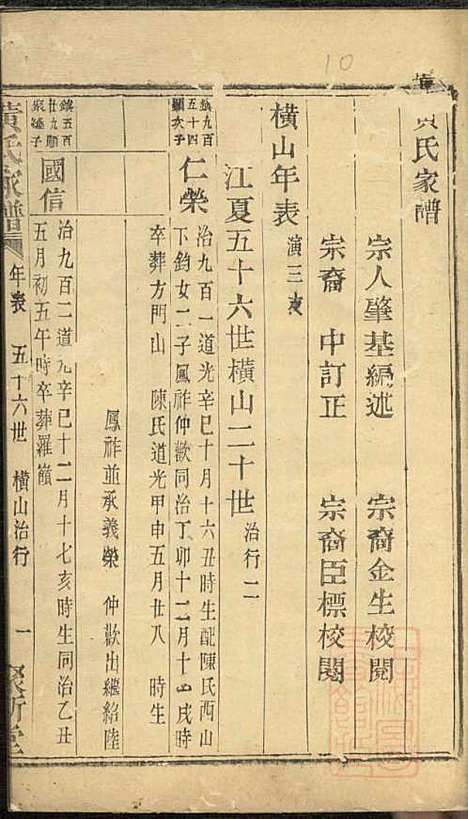 10
黃氏家譜
宗人肇基編述　宗裔金生校閱
宗裔　中訂正　宗裔臣標校閱
橫山年表 演三支
江夏五十六世橫山二十世 治行二
鎮九百五十四顯次子
仁榮
治九百一道光辛巳十月十六丑時生配陳氏西山
下鈞女二子鳳祚仲歡同治丁卯十二月十四戌時
卒葬方門山　陳氏道光甲申五月廿八　時生
鳳祚並承義榮　仲歡出繼紹陸
鎮五百廿九順
子
國信
治九百二道光辛巳十二月十七亥時生同治乙丑
五月初五午時卒葬羅嶺
黃氏家譜
年表　五十六世　橫山治行　一